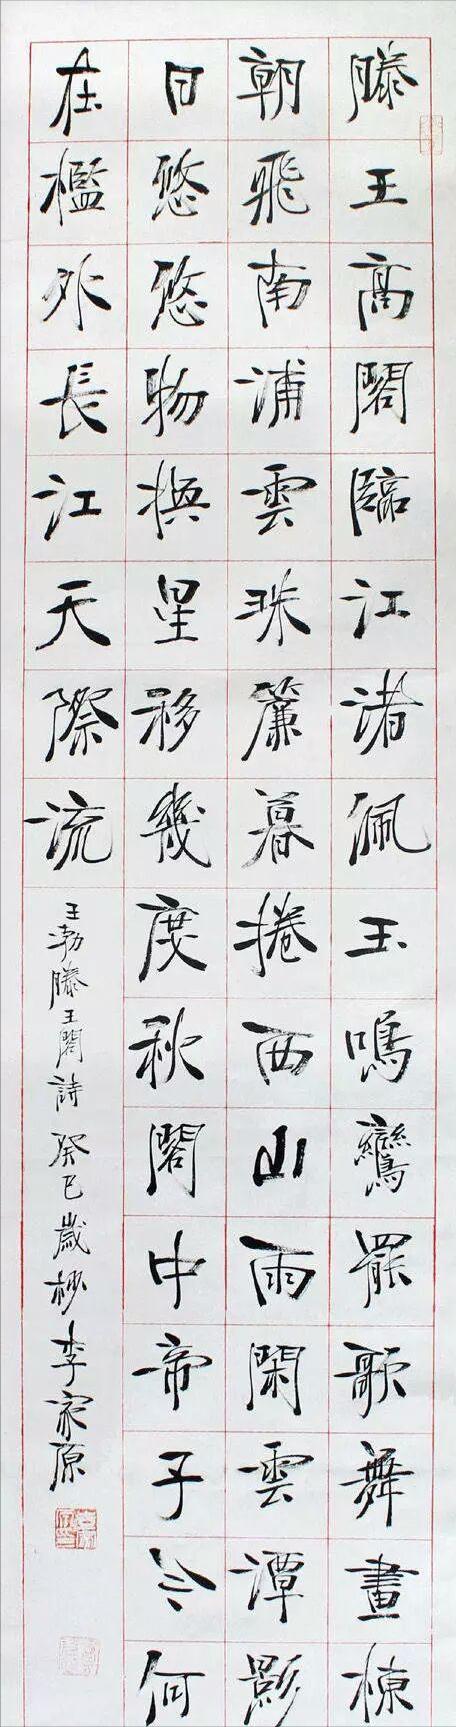 滕王高閣臨江渚佩玉鳴鸞罷歌舞畫棟
朝飛南浦雲珠簾暮捲西山雨閑雲潭影
日悠悠物換星移幾度秋閣中帝子今何
在檻外長江天際流
王勃滕王閣詩癸巳歲杪李家原